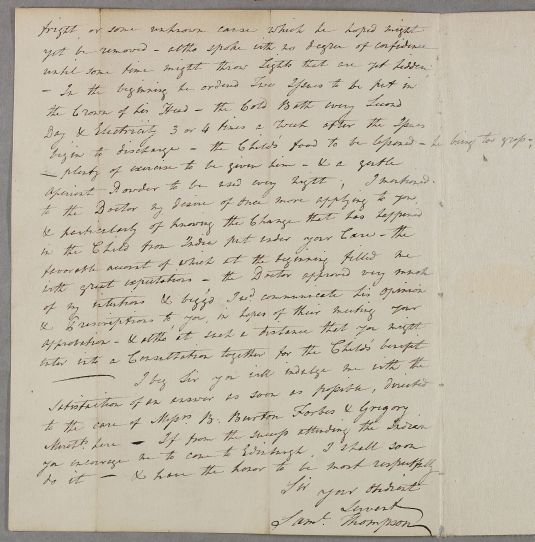 fright or some unknown cause which he hoped might
yet be removed - altho spoke with no degree of confidence
until some time might throw lights that are yet hidden
- In the beginning he ordered Two Issues to be put in
the Crown of his Head - the Cold Bath every Second
Day & Electricity 3 or 4 times a Week after the Issues
begin to discharge - the Child's food to be lessened - he being too gross -
- plenty of exercise to be given him - & a gentle
Aperient Powder to be used every Night, I mentioned
to the Doctor my desire of once more applying to you,
& particularly of knowing the Change that has happened
in the Child from India put under your Care - the
favorable account of which at the beginning filled me
with great expectations - the Doctor approved very much
of my intentions & begg'd I wd communicate his Opinion
& Prescriptions to you, in hopes of their meeting your
approbation - & altho at such a distance that you might
enter into a Consultation together for the Child's benefit
I beg Sir you will indulge me with the
Satisfaction of an answer as soon as possible, directed
to the care of Messrs. B. Burton Forbes & Gregory
Mercts. here - If from the success attending the Indian
you encourage me to come to Edinburgh, I shall soon
do it - & have the honor to be most respectfully
Sir your Obedient
Servant
Saml. Thompson